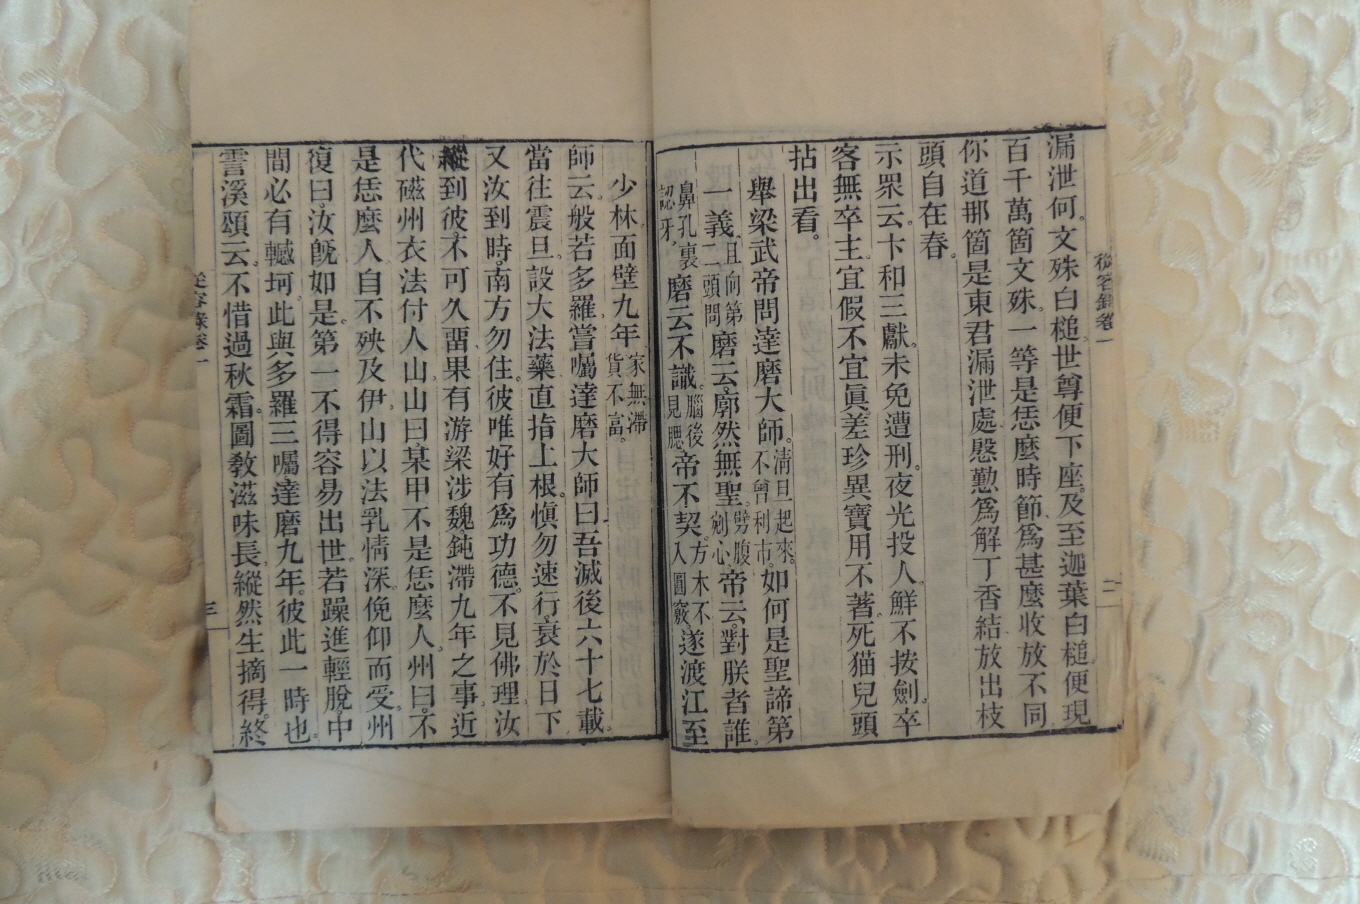 從容錄卷一
二
漏泄何。文殊白槌。世尊便下座。及至迦葉白槌。便現
百千萬箇文殊。一等是恁麼時節。爲甚麼收放不同
你道那箇是東君漏泄處。慇懃爲解丁香結。放出枝
頭自在春。
示眾云。卞和三獻。未免遭刑。夜光投人。鮮不按劍。卒
客無卒主。宜假不宜眞。差珍異寶用不著。死猫兒頭
拈出看。
舉梁武帝問達磨大師。清旦起來。不曾利市。如何是聖諦第
一義。且向第二頭問磨云。廓然無聖。劈腹剜心。帝云。對朕者誰。
鼻孔裏認牙。磨云不識。腦後見腮。帝不契。方木不入圓竅遂渡江至
少林面壁九年家無滯貨不富。
師云。般若多羅嘗囑達磨大師曰。吾滅後六十七載。
當往震旦。設大法藥直指上根。愼勿速行。衰於日下
又汝到時。南方勿住。彼唯好有爲功德。不見佛理。汝
縱到彼。不可久畱。果有游梁涉魏鈍滯九年之事。近
代磁州衣法付人山。山曰。某甲不是恁麼人。州曰。不
是恁麼人自不殃及伊。山以法乳情深。俛仰而受。州
復曰。汝旣如是。第一不得容易出世。若躁進輕脫。中
間必有轗坷。此與多羅三囑達磨九年。彼此一時也。
雪溪頌云。不惜過秋霜。圖敎滋味長。縱然生摘得。終
從容錄卷一
三